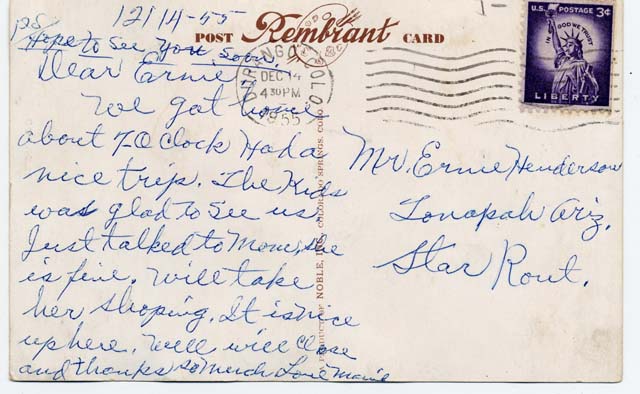 12/14-55
PS
Hope to See You Soon.
POST Rembrant CARD
U.S. POSTAGE 3¢
IN GOD WE TRUST
LIBERTY
DURANGO COLO.
DEC 14
4 30 PM
1955
Dear Ernie
We got home
about 7-O Clock Had a
nice trip. The Kids
was glad to See us.
Just talked to Mom, she
is fine. Will take
her shoping. It is nice
up here. Well will Close
and thanks so much Love Marie
Mr. Ernie Henderson
Tonapah Ariz.
Star Rout.
A PRODUCT OF NOBLE, INC., COLORADO SPRINGS, COLO.